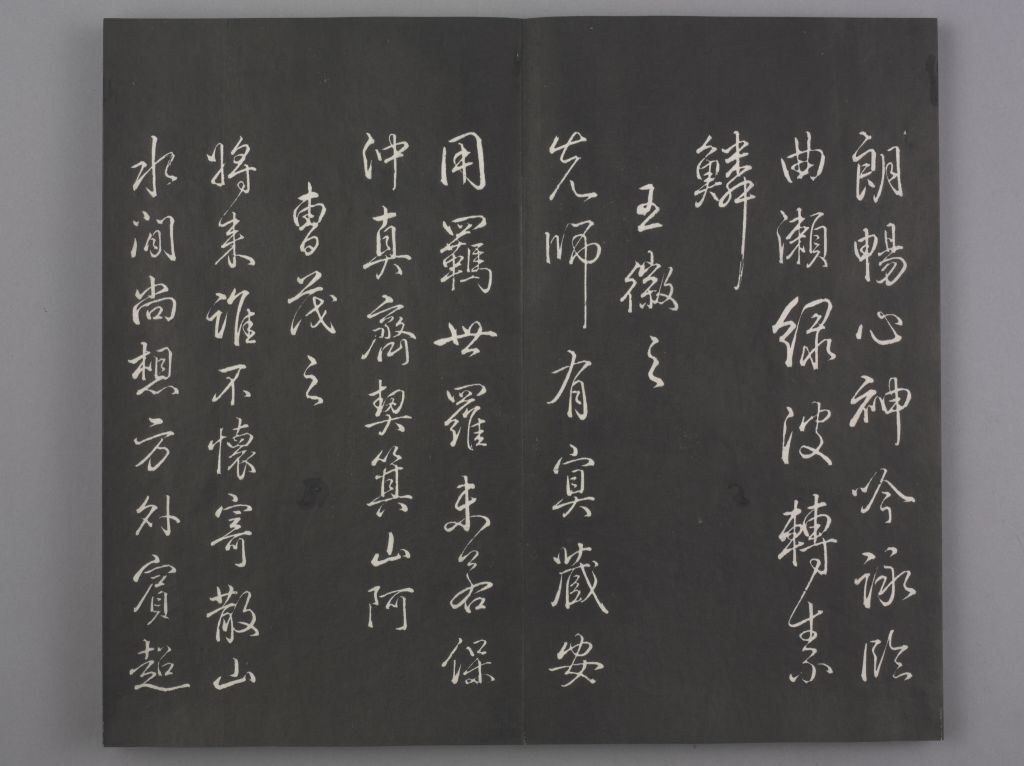 朗暢心神吟詠臨
曲瀨綠波轉素
鱗
王徽之
先師有冥藏安
用羈世羅未若保
沖真齊契箕山阿
曹茂之
時來誰不懷寄散山
水間尚想方外賓超